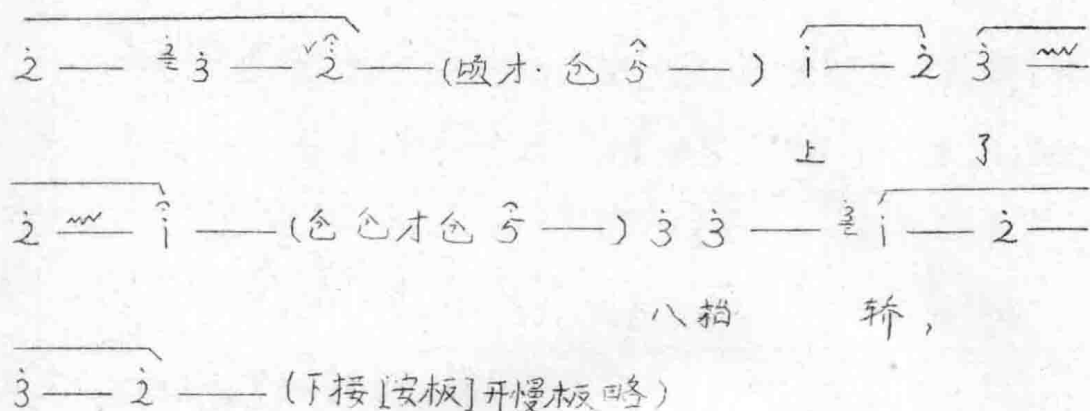 2̇ — 2̇ 3̇ — 2̇ — (顷才· 仓 5 — ) i̇ — 2̇ 3̇ —
上 了
2̇ — i̇ — (仓仓才仓 5 — ) 3̇ 3̇ — 3̇ i̇ — 2̇ —
八 轿,
3̇ — 2̇ — (下接[安板]开慢板略)